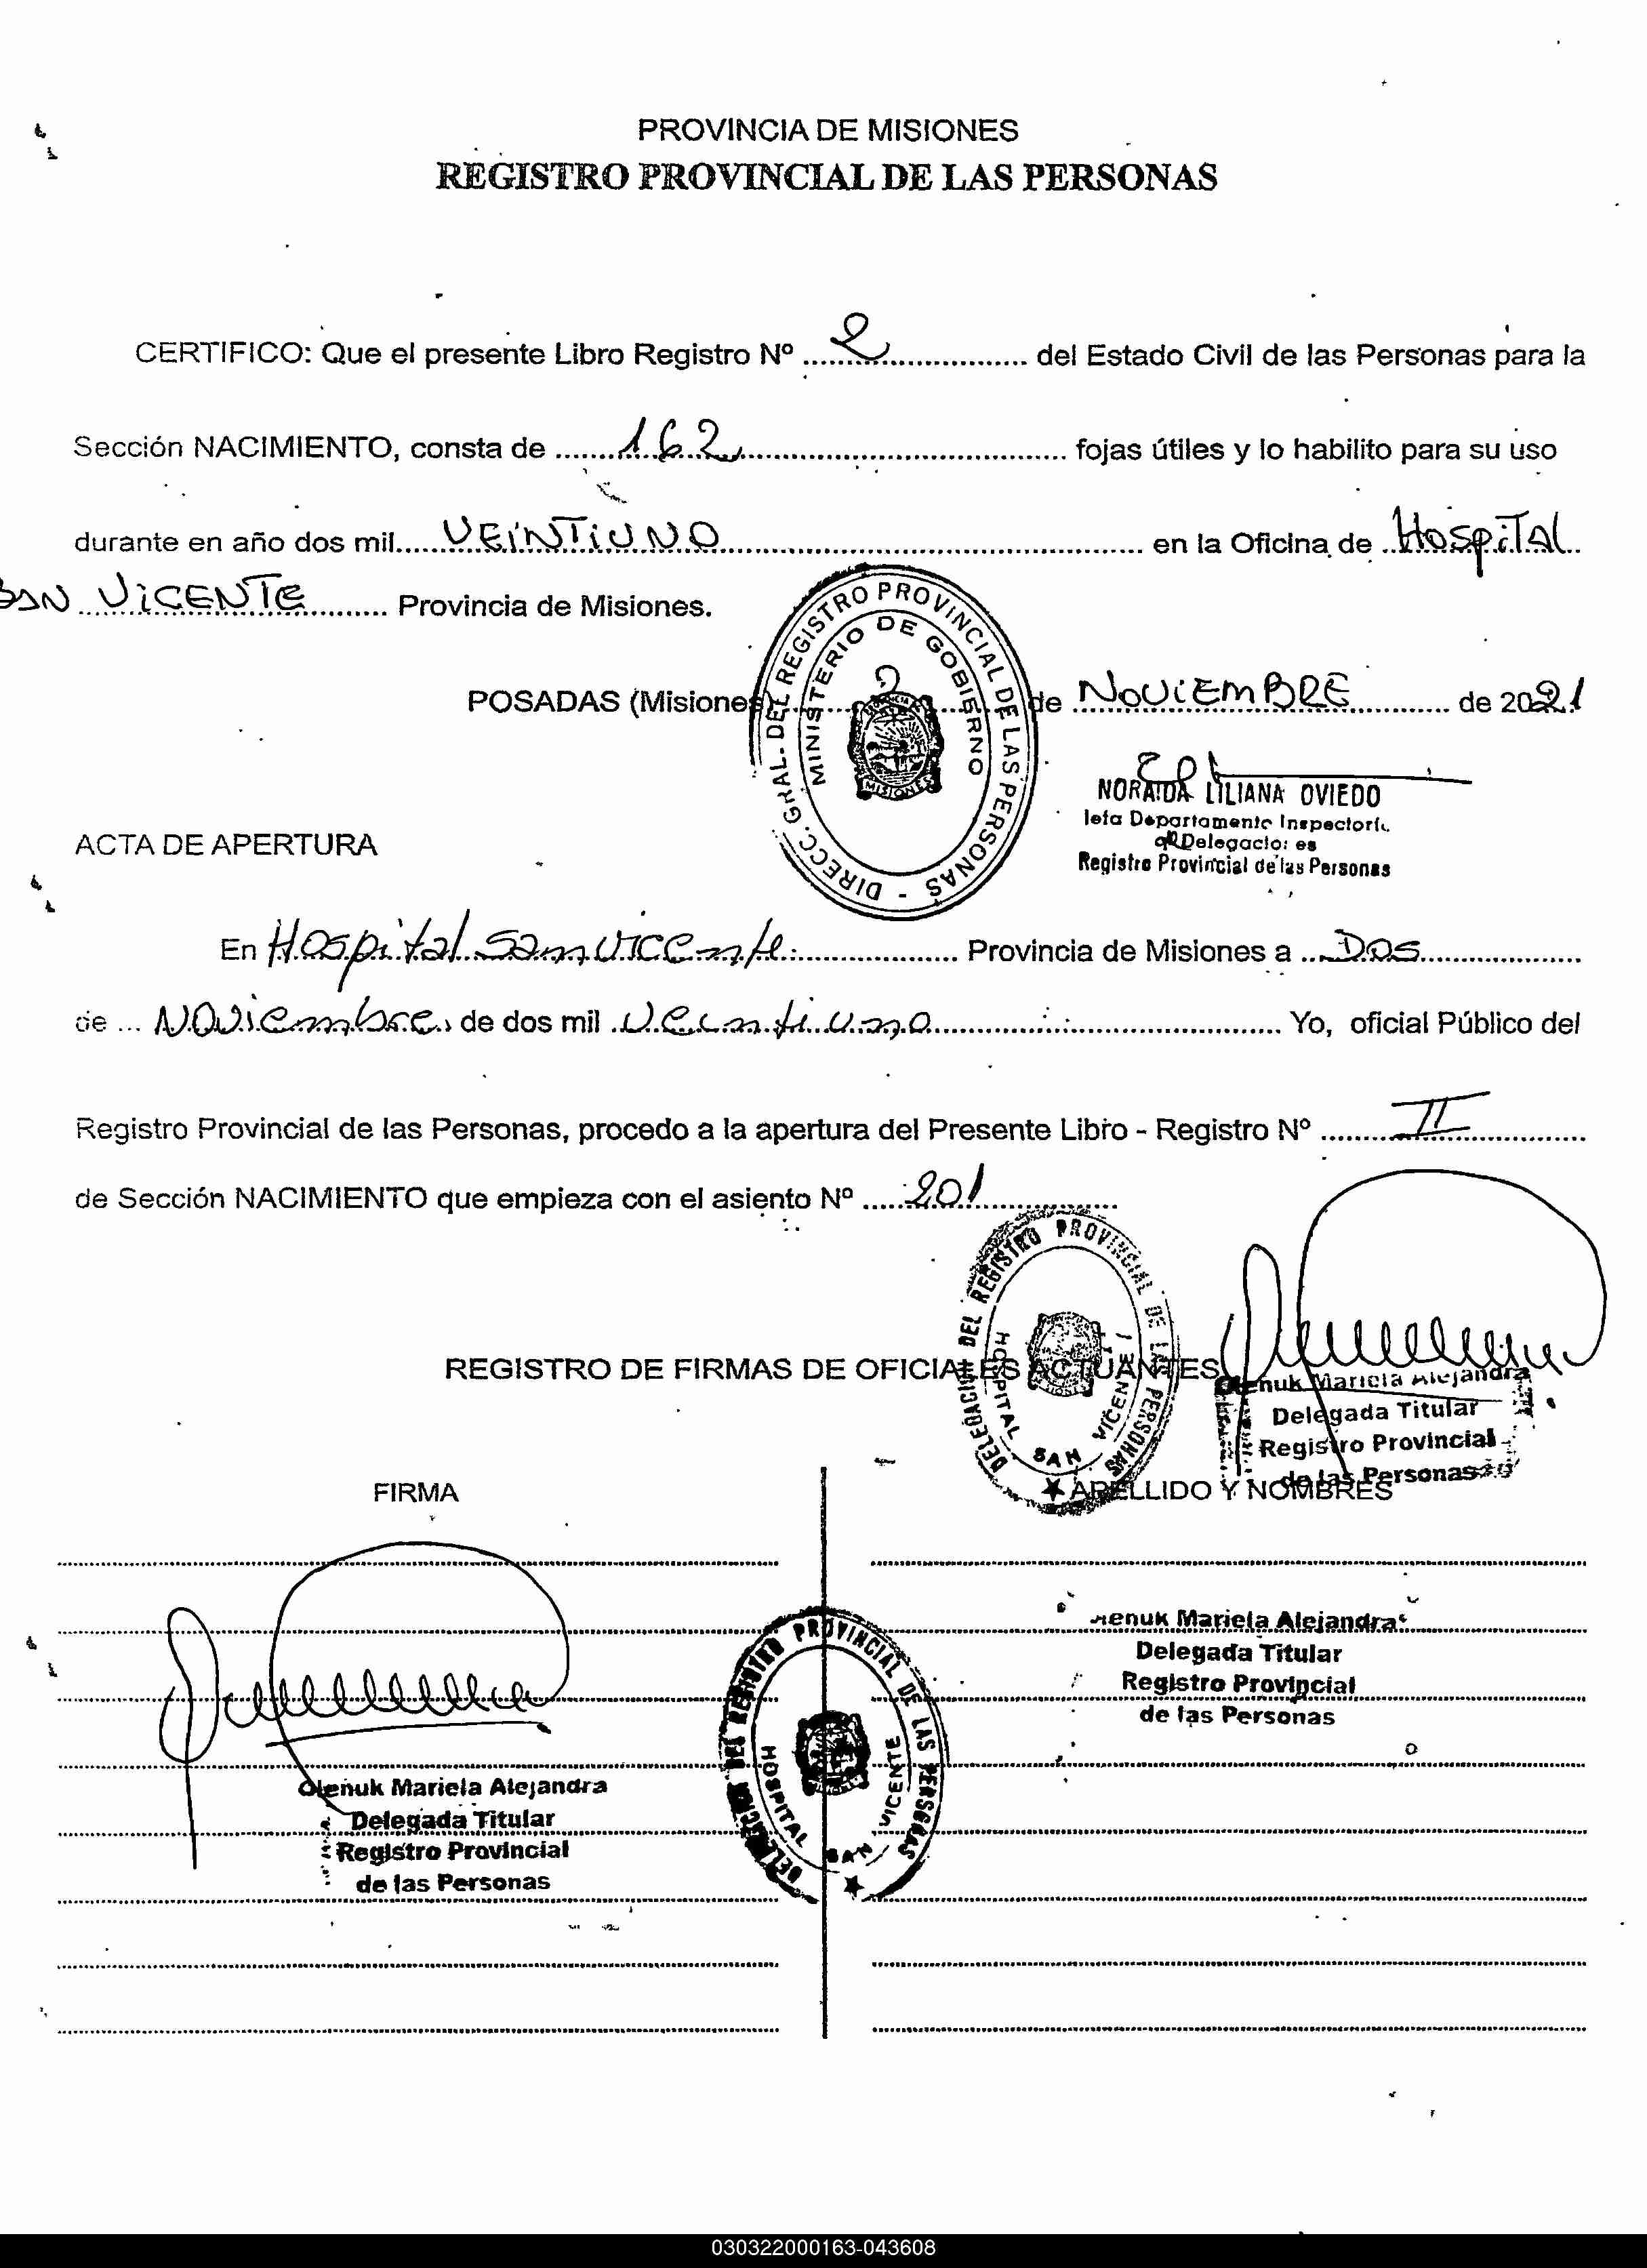 PROVINCIA DE MISIONES
REGISTRO PROVINCIAL DE LAS PERSONAS
CERTIFICO: Que el presente Libro Registro Nº 2 del Estado Civil de las Personas para la
Sección NACIMIENTO, consta de 162 fojas útiles y lo habilito para su uso
durante en año dos mil VEINTIUNO en la Oficina de HospiTAL
SAN VICENTE Provincia de Misiones.
POSADAS (Misiones) 2 de NOVIEMBRE de 2021
DIRECC. GRAL. DEL REGISTRO PROVINCIAL DE LAS PERSONAS -
MINISTERIO DE GOBIERNO
MISIONES
NORAIDA LILIANA OVIEDO
Departamento Inspectoría
Registro Provincial de las Personas
ACTA DE APERTURA
En Hospital San Vicente Provincia de Misiones a Dos
de Noviembre de dos mil Veintiuno Yo, oficial Público del
Registro Provincial de las Personas, procedo a la apertura del Presente Libro - Registro Nº II
de Sección NACIMIENTO que empieza con el asiento Nº 201
DELEGACION DEL REGISTRO PROVINCIAL DE LAS PERSONAS
HOSPITAL SAN VICENTE
REGISTRO DE FIRMAS DE OFICIALES ACTUANTES
Olenuk Mariela Alejandra
Delegada Titular
Registro Provincial
de las Personas
FIRMA
APELLIDO Y NOMBRES
Olenuk Mariela Alejandra
Delegada Titular
Registro Provincial
de las Personas
DELEGACION DEL REGISTRO PROVINCIAL DE LAS PERSONAS
HOSPITAL SAN VICENTE
Olenuk Mariela Alejandra
Delegada Titular
Registro Provincial
de las Personas
030322000163-043608